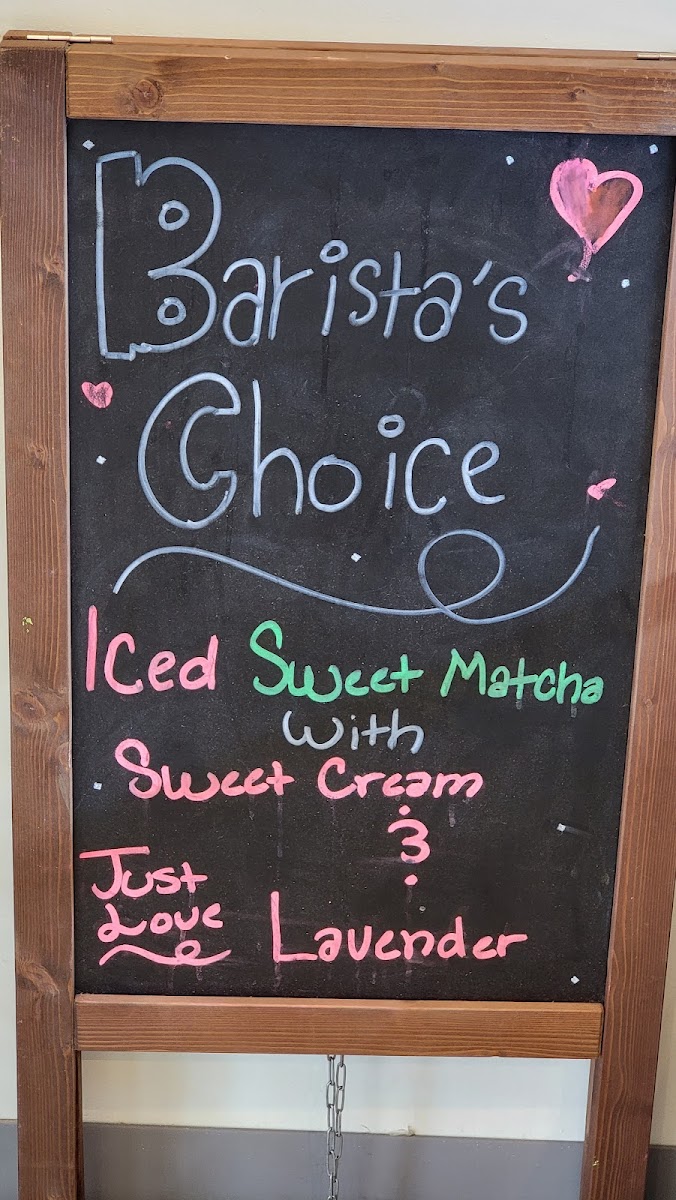 Barista's
Choice
Iced Sweet Matcha
with
Sweet Cream
&
Just
Love
Lavender